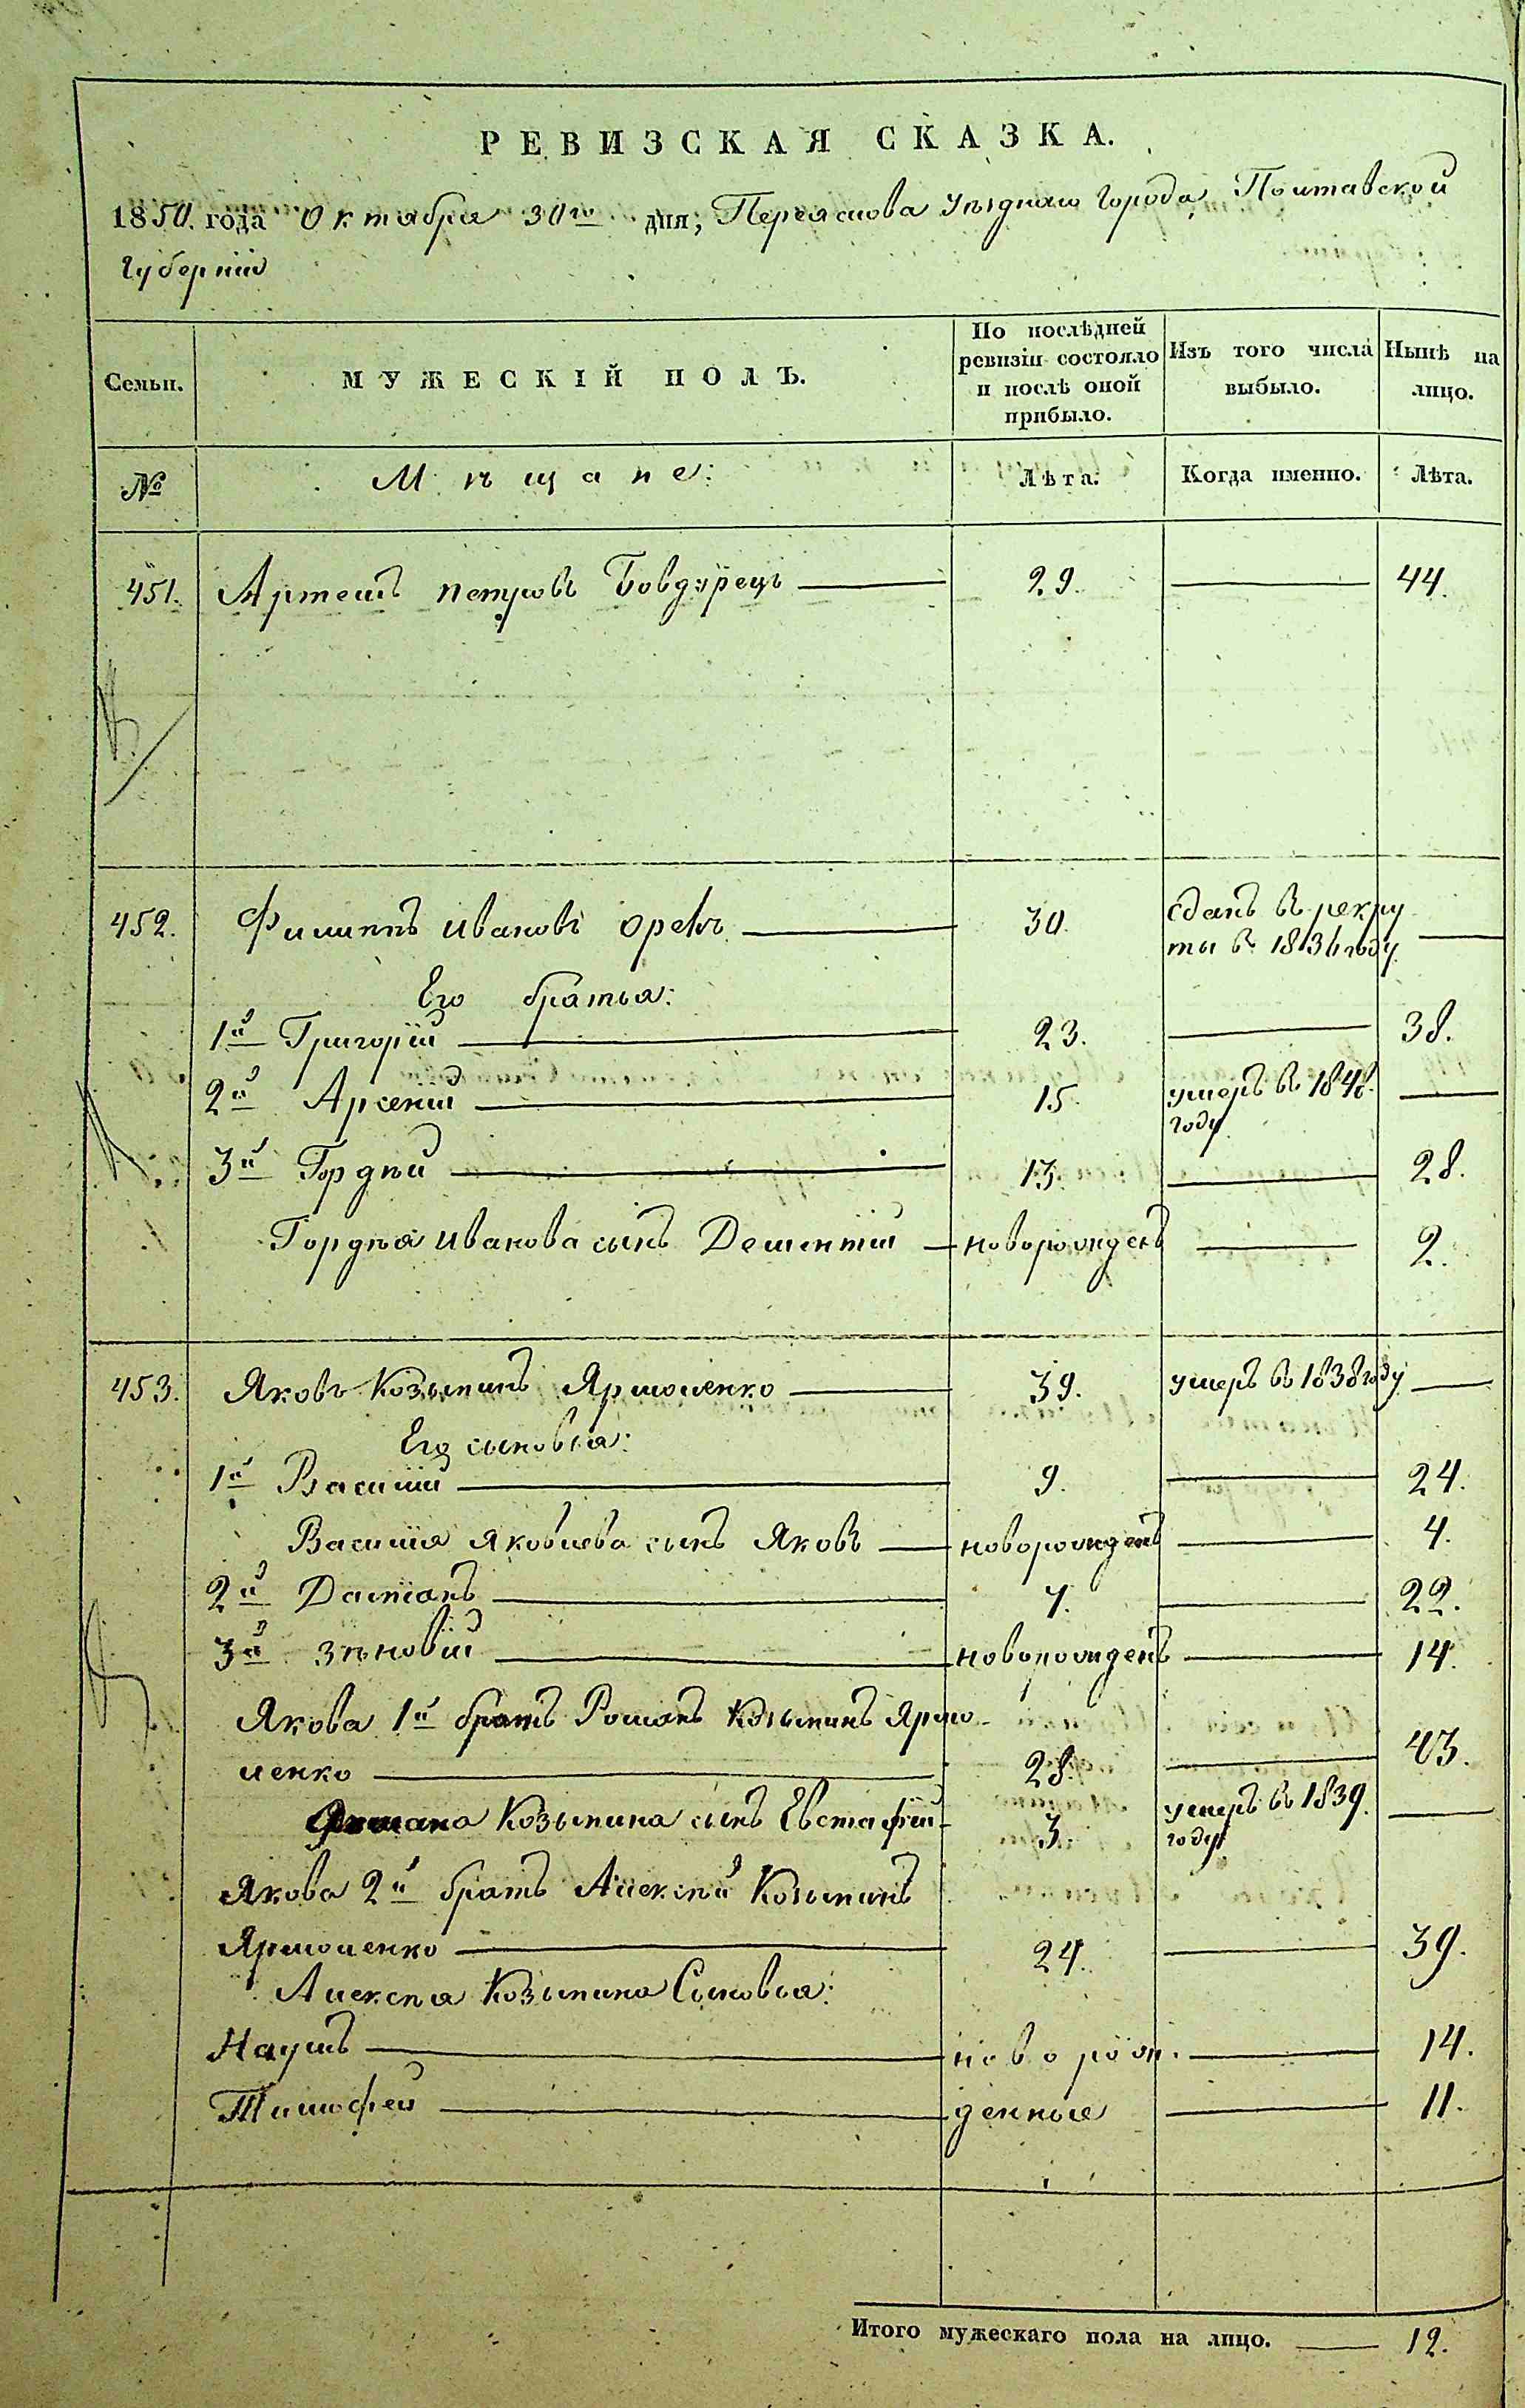 РЕВИЗСКАЯ СКАЗКА.
1850. года Октября 30го дня; Переяслова Уѣзднаго Города, Полтавской
Губерніи
Семьи.
МУЖЕСКІЙ ПОЛЪ.
По послѣдней ревизіи состояло и послѣ оной прибыло.
Изъ того числа выбыло.
Нынѣ на лицо.
№ Мѣщане: Лѣта. Когда именно. Лѣта.
451. Артемъ Петровъ Бовдурецъ 29. 44.
452. Филиппъ Ивановъ 30. Сданъ въ рекру
ты въ году
Его братья:
1й Григорій 23. 38.
2й Арсеній 15. умеръ въ 1848.
году
3й Гордѣй 13. 28.
Гордѣя Иванова сынъ Дементій новорожденъ 2.
453. Яковъ Козьминъ Ярмоленко 39. умеръ въ 1838 году
Его сыновья:
1й Василій 9. 24.
Василія Яковлева сынъ Яковъ новорожденъ 4.
2й Даміанъ 7. 22.
3й Зѣновій новорожденъ 14.
Якова 1й братъ Романъ Козьминъ Ярмо
ленко 28. 43.
Романа Козьмина сынъ Евстафій 3. умеръ въ 1839.
году
Якова 2й братъ Алексѣй Козьминъ
Ярмоленко 24. 39.
Алексѣя Козьмина Сыновья:
Наумъ новорож. 14.
Тимофей денные 11.
Итого мужескаго пола на лицо. 12.